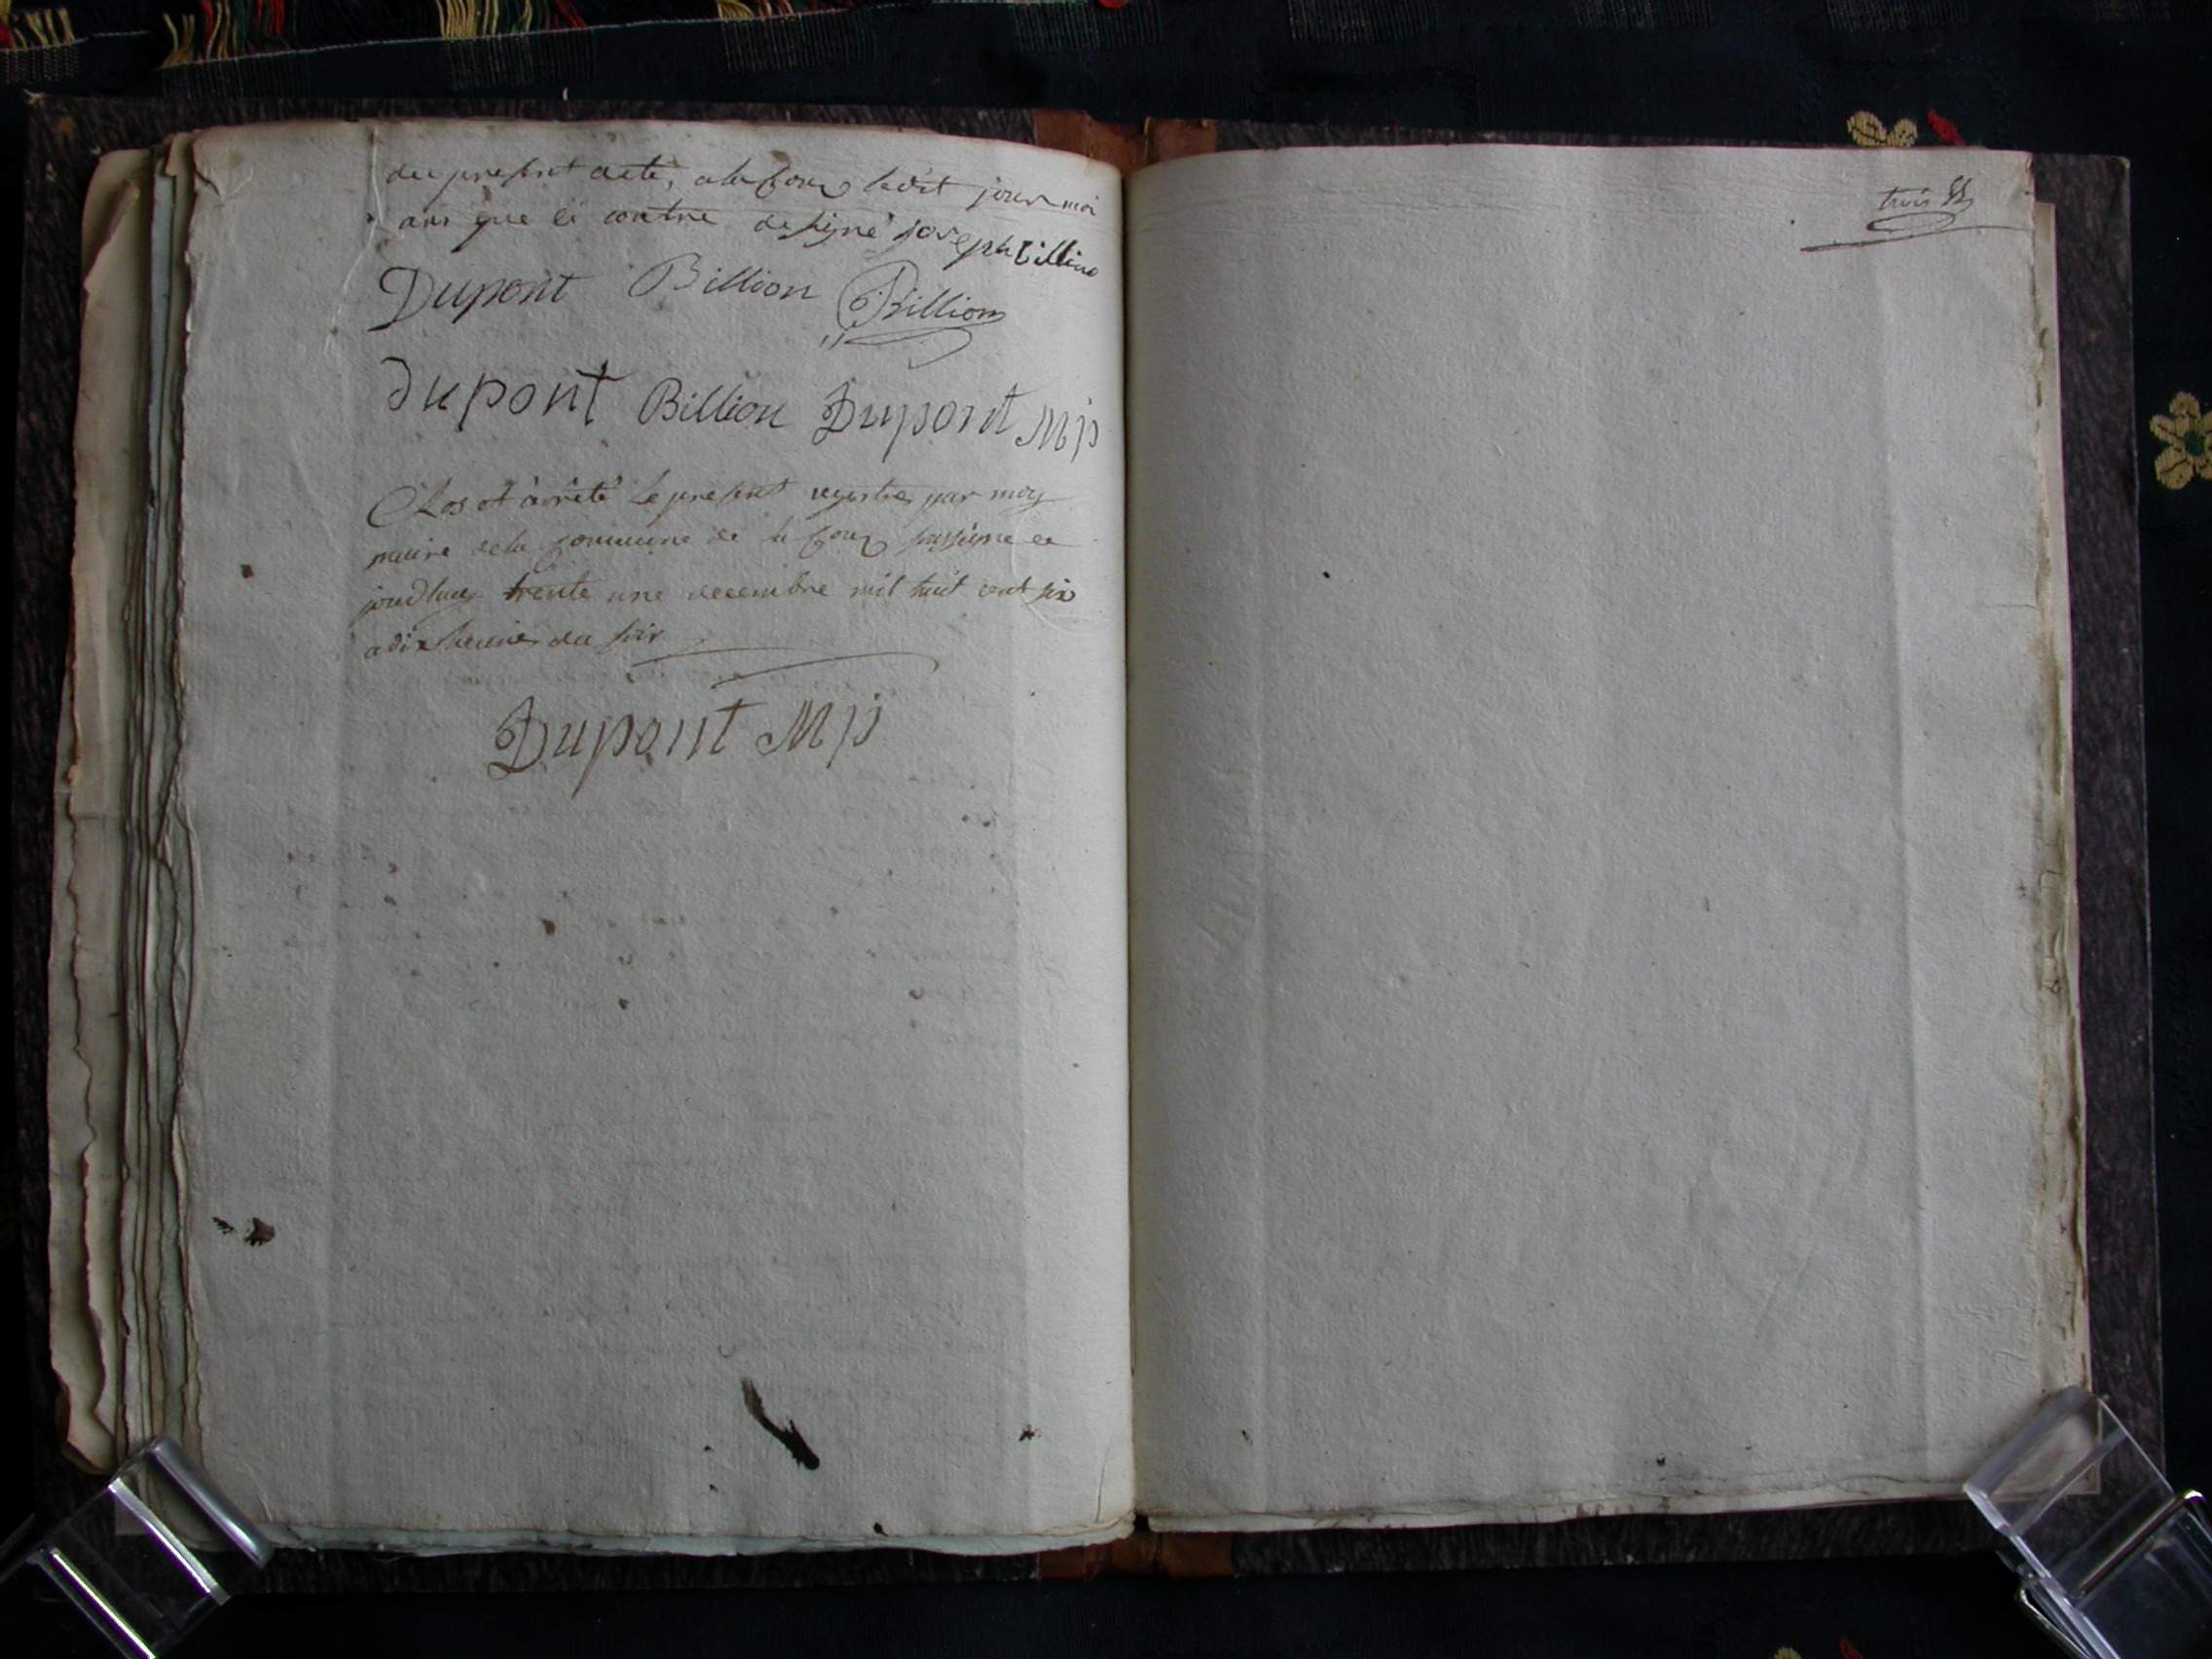 du present acte, a la Cour ledit jour moi
ans que ci contre de signé joseph billion
Dupont Billion Billion
dupont Billion Dupont M p
Clos et arrêté le present registre par moy
maire de la commune de la Cour soussigné ce
jourdhuy trente une decembre mil huit cent six
a dix heures du soir
Dupont M p
trois